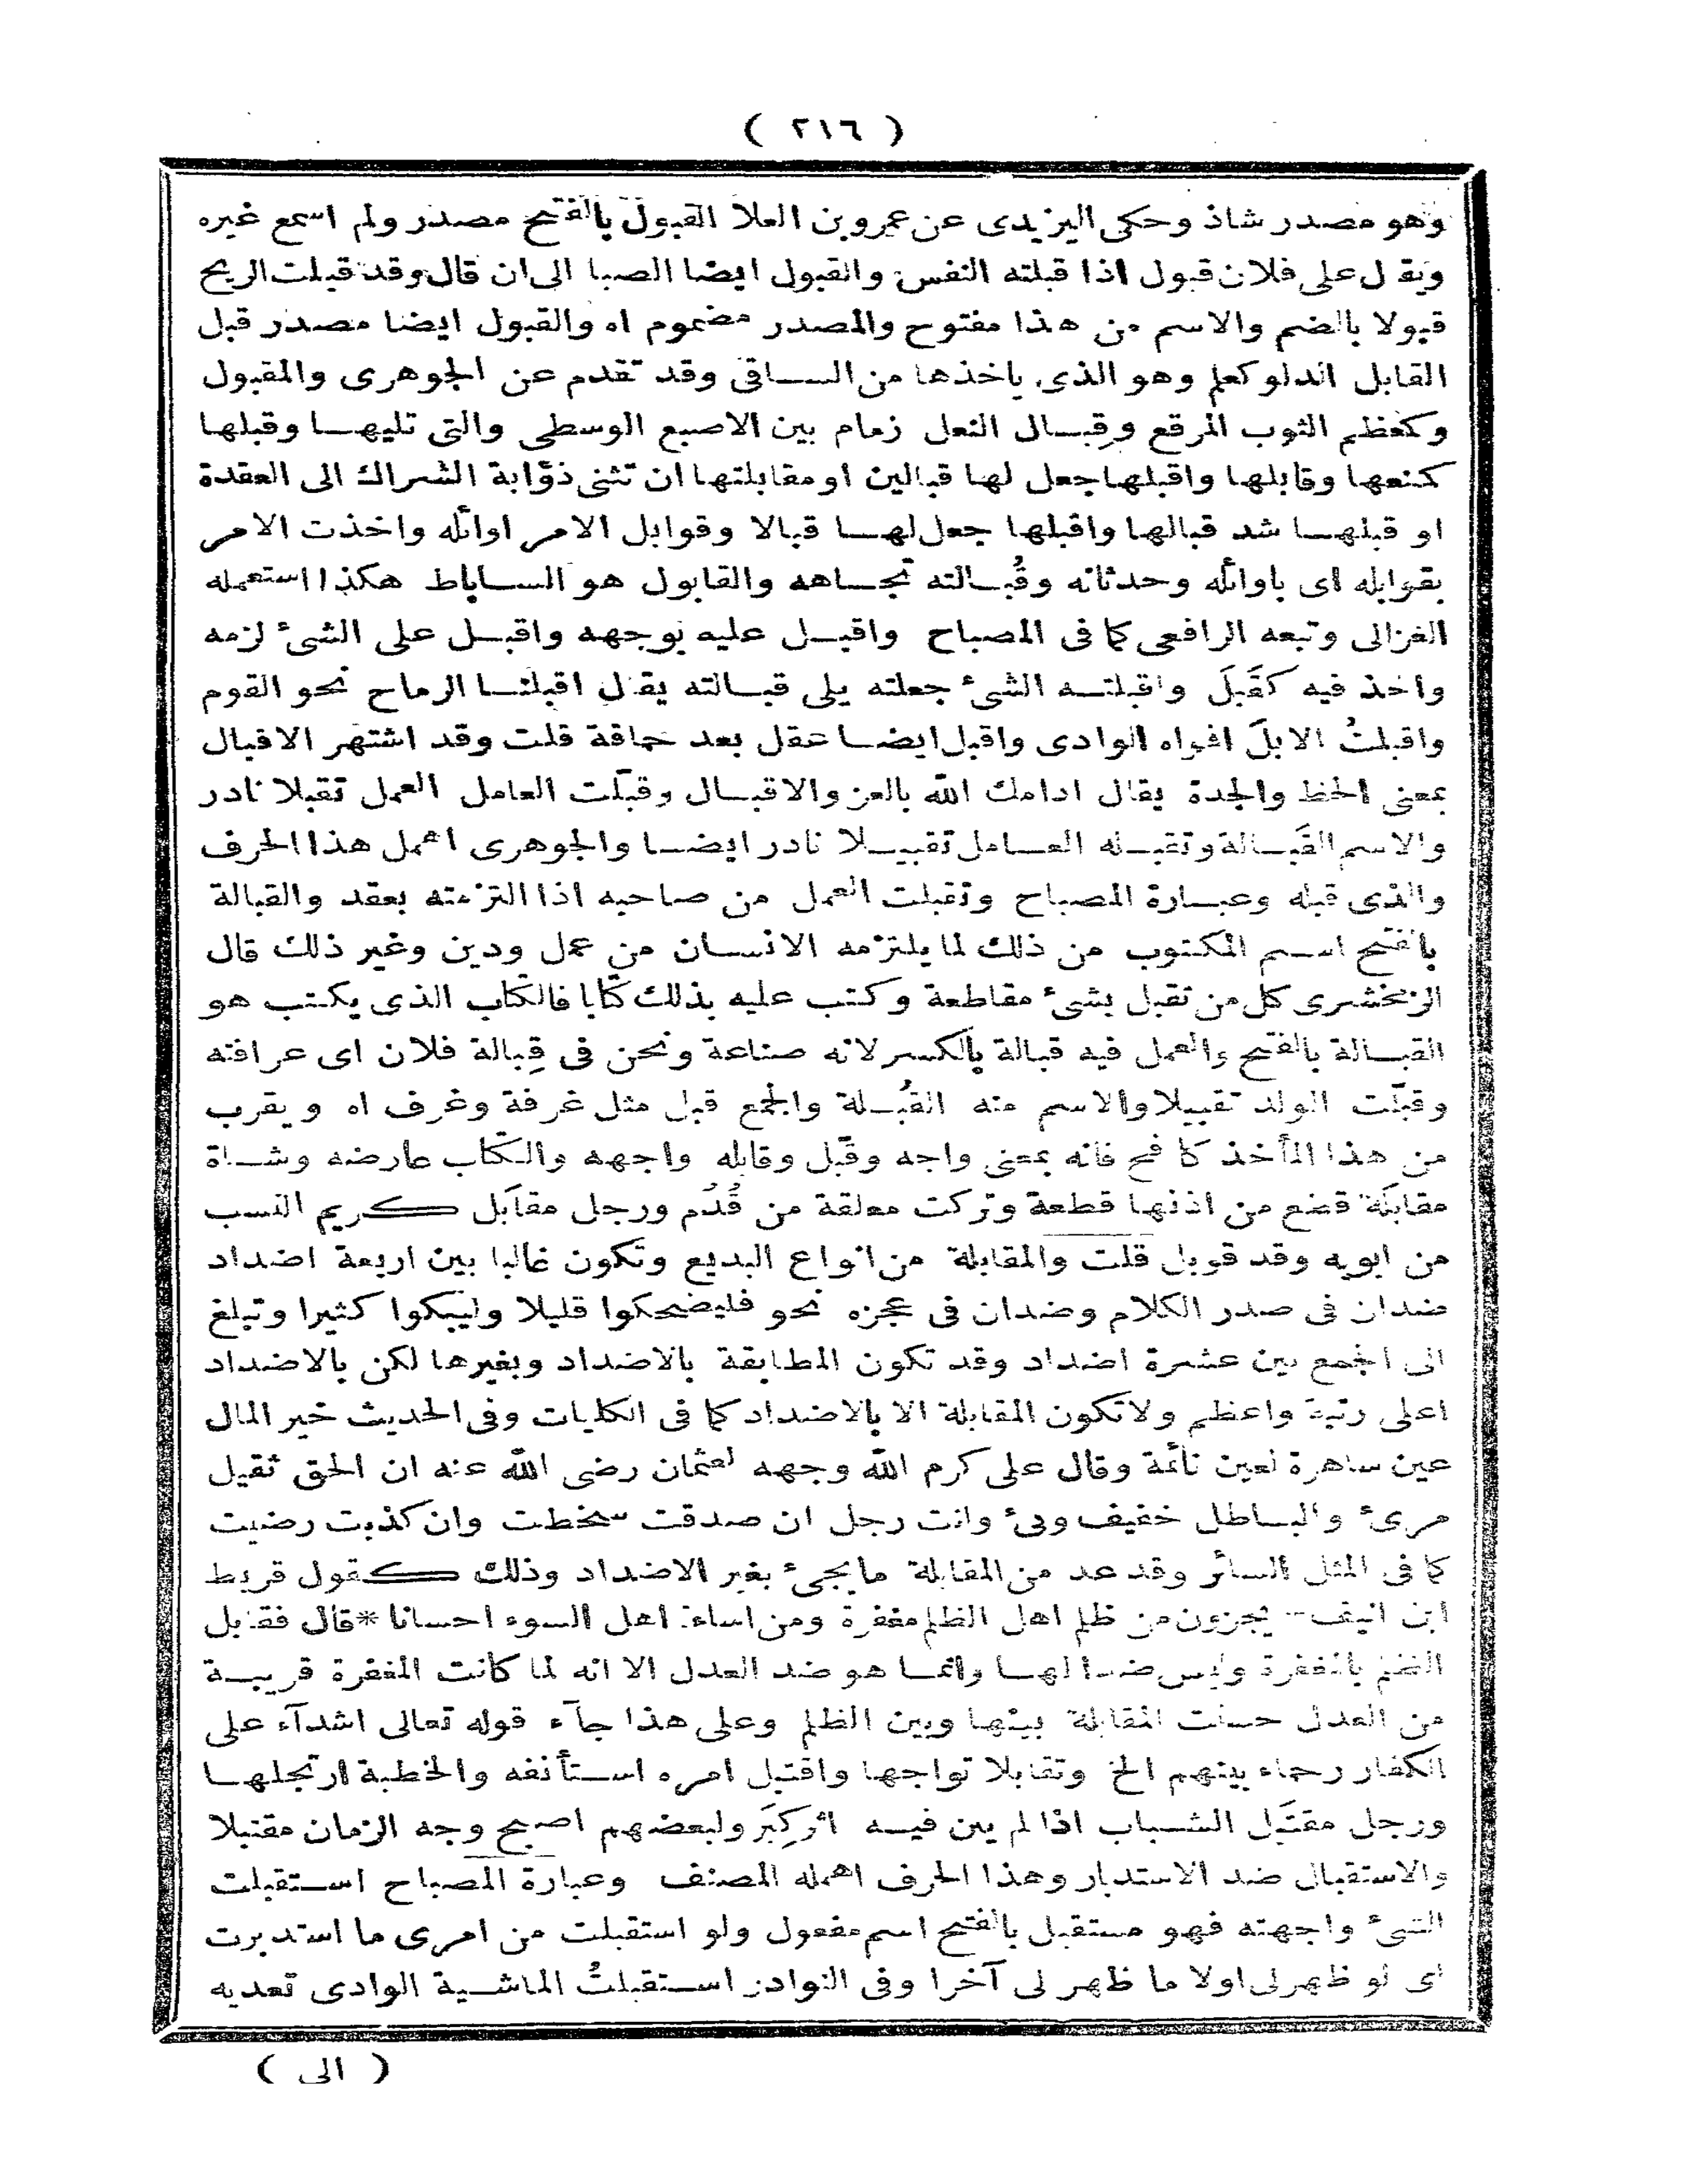 ( ٢١٦ )
وهو مصدر شاذ وحكى اليزيدى عن عمرو بن العلا القبول بالفتح مصدر ولم اسمع غيره
ويقال على فلان قبول اذا قبلته النفس والقبول ايضا الصبا الى ان قال وقد قبلت الريح
قبولا بالضم والاسم من هذا مفتوح والمصدر مضموم اه والقبول ايضا مصدر قبل
القابل الدلو كعلم وهو الذى ياخذها من الساقى وقد تقدم عن الجوهرى والمقبول
وكمعظم الثوب المرقع وقِبال النعل زمام بين الاصبع الوسطى والتى تليها وقبلها
كمنعها وقابلها واقبلها جعل لها قبالين او مقابلتها ان تثنى ذؤابة الشراك الى العقدة
او قبلها شد قبالها واقبلها جعل لها قبالا وقوابل الامر اوائله واخذت الامر
بقوابله اى باوائله وحدثانه وقُبالته تجاهه والقابول هو الساباط هكذا استعمله
الغزالى وتبعه الرافعى كما فى المصباح واقبل عليه بوجهه واقبل على الشئ لزمه
واخذ فيه كقَبَلَ واقبلته الشئ جعلته يلى قبالته يقال اقبلنا الرماح نحو القوم
واقبلتُ الابلَ افواه الوادى واقبل ايضا عقل بعد حماقة قلت وقد اشتهر الاقبال
بمعنى الحظ والجدة يقال ادامك الله بالعز والاقبال وقبّلت العامل العمل تقبلا نادر
والاسم القَبالة وتقبله العامل تقبيلا نادر ايضا والجوهرى اهمل هذا الحرف
والذى قبله وعبارة المصباح وتقبلت العمل من صاحبه اذا التزمته بعقد والقبالة
بالفتح اسم المكتوب من ذلك لما يلتزمه الانسان من عمل ودين وغير ذلك قال
الزمخشرى كل من تقبل بشئ مقاطعة وكتب عليه بذلك كتابا فالكتاب الذى يكتب هو
القبالة بالفتح والعمل فيه قبالة بالكسر لانه صناعة ونحن فى قِبالة فلان اى عرافته
وقبّلت الولد تقبيلا والاسم منه القُبلة والجمع قبل مثل غرفة وغرف اه ويقرب
من هذا المأخذ كافح فانه بمعنى واجه وقبّل وقابله واجهه والكتاب عارضه وشاة
مقابَلة قطع من اذنها قطعة وتركت معلقة من قُدُم ورجل مقابَل كريم النسب
من ابويه وقد قوبل قلت والمقابلة من انواع البديع وتكون غالبا بين اربعة اضداد
ضدان فى صدر الكلام وضدان فى عجزه نحو فليضحكوا قليلا وليبكوا كثيرا وتبلغ
الى الجمع بين عشرة اضداد وقد تكون المطابقة بالاضداد وبغيرها لكن بالاضداد
اعلى رتبة واعظم ولا تكون المقابلة الا بالاضداد كما فى الكليات وفى الحديث خير المال
عين ساهرة لعين نائمة وقال على كرم الله وجهه لعثمان رضى الله عنه ان الحق ثقيل
مرئ والباطل خفيف وبئ وانت رجل ان صدقت سخطت وان كذبت رضيت
كما فى المثل السائر وقد عد من المقابلة ما يجئ بغير الاضداد وذلك كقول قريط
ابن انيف يجزون من ظلم اهل الظلم مغفرة ومن اساءة اهل السوء احسانا * قال فقابل
الظلم بالمغفرة وليس ضدا لها وانما هو ضد العدل الا انه لما كانت المغفرة قريبة
من العدل حسنت المقابلة بينها وبين الظلم وعلى هذا جآء قوله تعالى اشدآء على
الكفار رحماء بينهم الخ وتقابلا تواجها واقتبل امره استأنفه والخطبة ارتجلها
ورجل مقتبَل الشباب اذا لم يبن فيه اثر كِبَر ولبعضهم اصبح وجه الزمان مقتبلا
والاستقبال ضد الاستدبار وهذا الحرف اهمله المصنف وعبارة المصباح استقبلت
الشئ واجهته فهو مستقبل بالفتح اسم مفعول ولو استقبلت من امرى ما استدبرت
اى لو ظهر لى اولا ما ظهر لى آخرا وفى النوادر استقبلتُ الماشية الوادى تعديه
( الى )